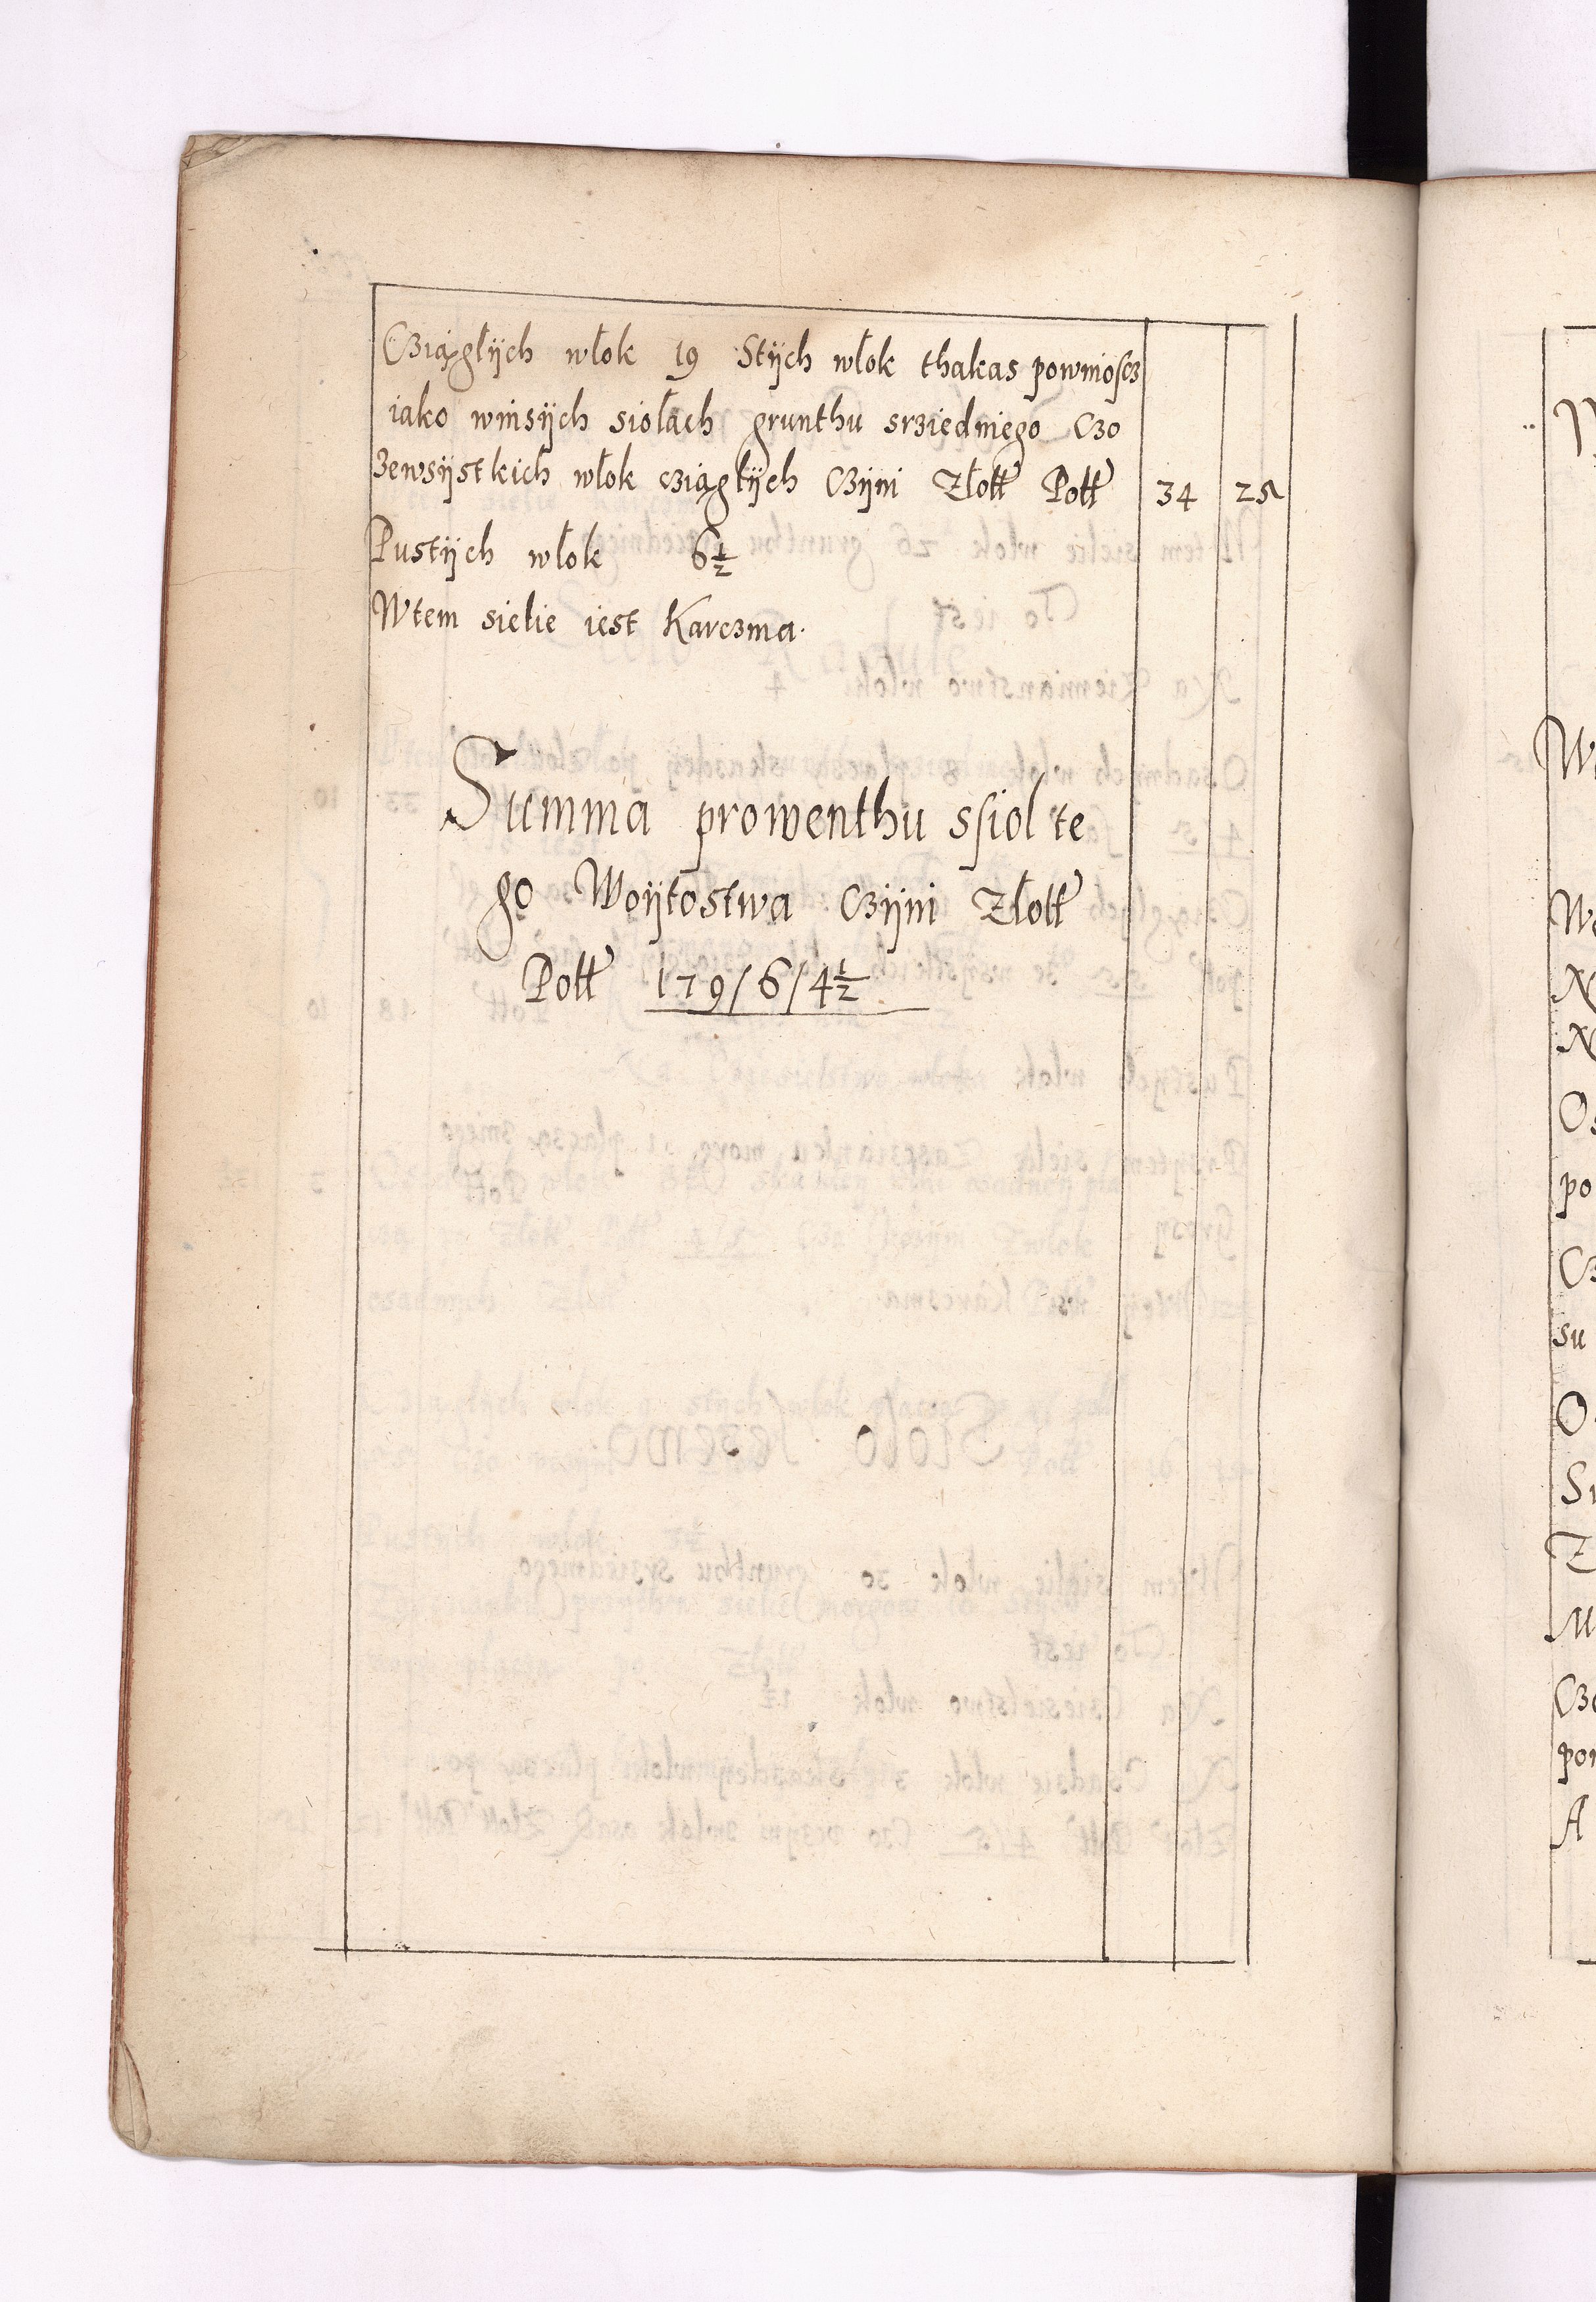 Cziągłÿch włok 19 Stÿch włok thakas pownioścz
iako winsÿch siołach grunthu srziedniego Czo
zewsÿstkich włok cziągłÿch Czÿni Złott Pott 34 25
Pustÿch włok 6 1/2
Wtem sielie iest Karczma.
Summa prowenthu sſiol te
go Woÿtostwa Czÿni Złott
Pott 179/6/4 1/2